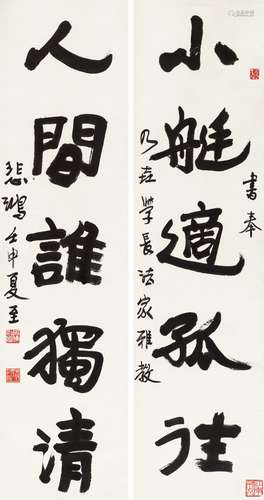 小艇適孤往
人間誰獨清
書奉
乃垚學長法家雅教
悲鴻壬申夏至